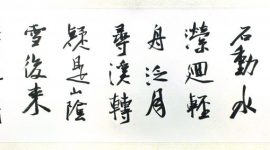 石動水
瀠迴輕
舟泛月
尋溪轉
疑是山陰
雪後来